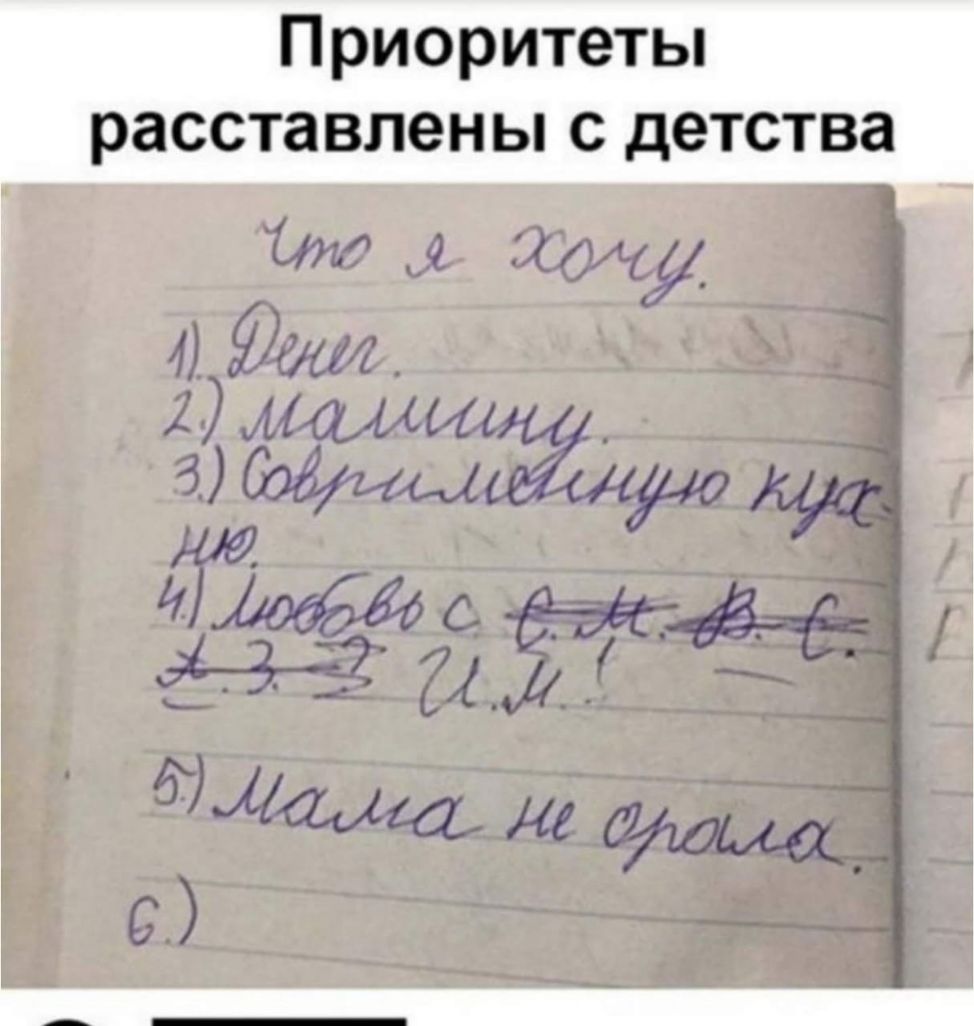 Приоритеты
расставлены с детства
Что я хочу.
1). Денег.
2.) Машину.
3.) Соврименную кух-
ню.
4.) Любовь с С. М. В. С.
А. З. З И.М.!
5.) Мама не орала.
6.)